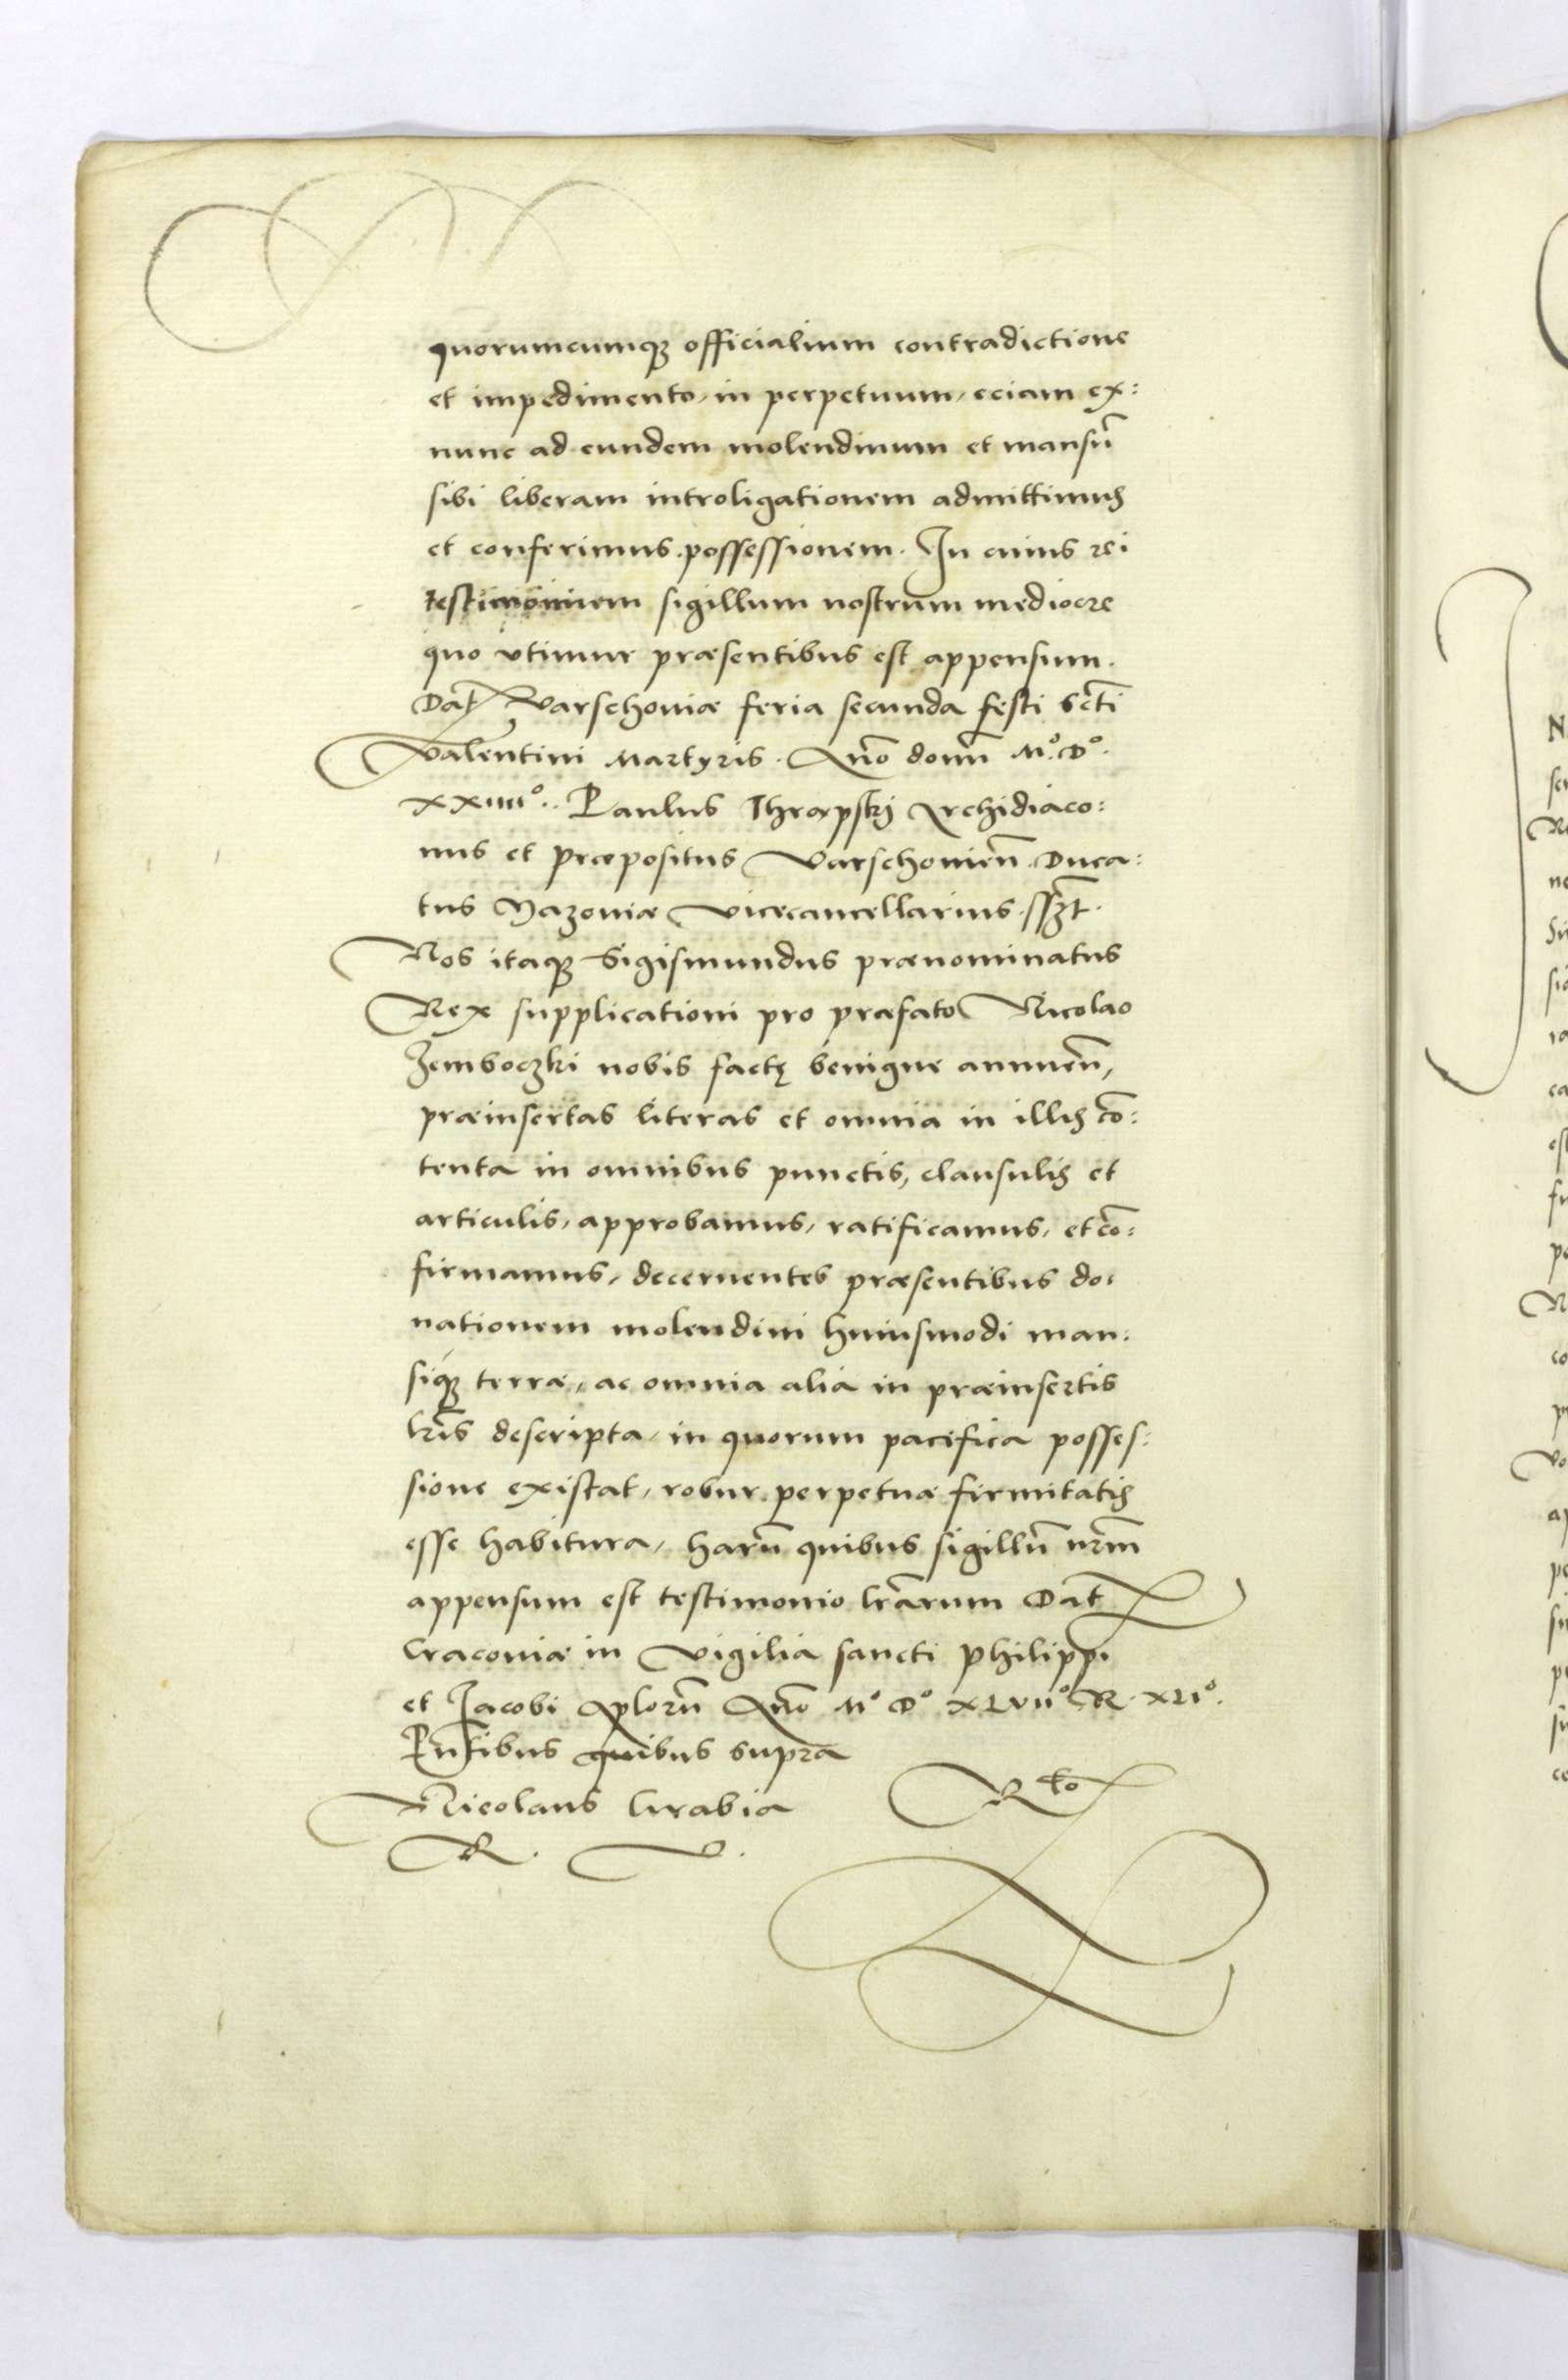 quorumcumqꝫ officialium contradictione
et impedimento, in perpetuum, eciam ex:
nunc ad eundem molendinum et mansũ
sibi liberam introligationem admittimus
et conferimus possessionem. In cuius rei
testimonium sigillum nostrum mediocre
quo vtimur præsentibus est appensum.
Dat Varschoviæ feria secunda festi Scti
Valentini Martyris. Año domñ M.º D.º
XXIIIIº. Paulus Thræpskj Archidiaco:
nus et præpositus Varschovieñ. Duca:
tus Mazoviæ Vicecancellarius. sszt.
Nos itaqꝫ Sigismundus prænominatus
Rex supplicationi pro præfato Nicolao
Zemboczki nobis factę benigne annueñ,
præinsertas literas et omnia in illis cõ:
tenta in omnibus punctis, clausulis et
articulis, approbamus, ratificamus, et cõ:
firmamus, decernentes præsentibus do:
nationem molendini huiusmodi man:
siqꝫ terræ, ac omnia alia in præinsertis
lr̃is descripta, in quorum pacifica posses:
sione existat, robur perpetuæ firmitatis
esse habitura, harũ quibus sigillũ nr̃m
appensum est testimonio lr̃arum Dat
Cracoviæ in Vigilia sancti Philippi
et Jacobi Aplorũ Año Mº Dº XLVIIº R. XLIº.
Pñtibus quibus supra
Nicolaus Grabia
R. V.
Rto